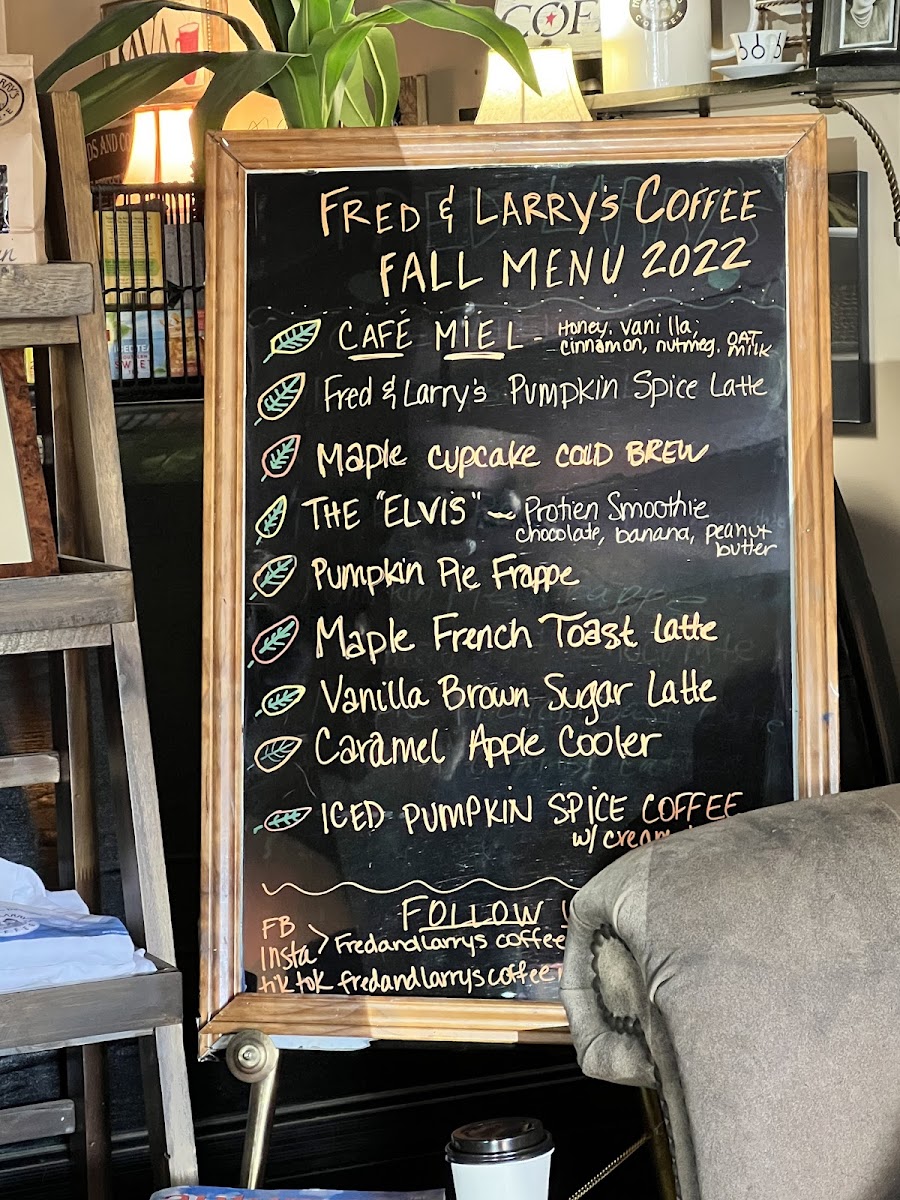 FRED & LARRY'S COFFEE
FALL MENU 2022
CAFÉ MIEL - Honey, vanilla,
cinnamon, nutmeg. OAT
MILK
Fred & Larry's Pumpkin Spice Latte
Maple cupcake COLD BREW
THE "ELVIS" ~ Protien Smoothie
chocolate, banana, peanut
butter
Pumpkin Pie Frappe
Maple French Toast Latte
Vanilla Brown Sugar Latte
Caramel Apple Cooler
ICED PUMPKIN SPICE COFFEE
w/ cream
FOLLOW
FB
Insta > Fredandlarrys coffee
tik tok fredandlarryscoffee
COF